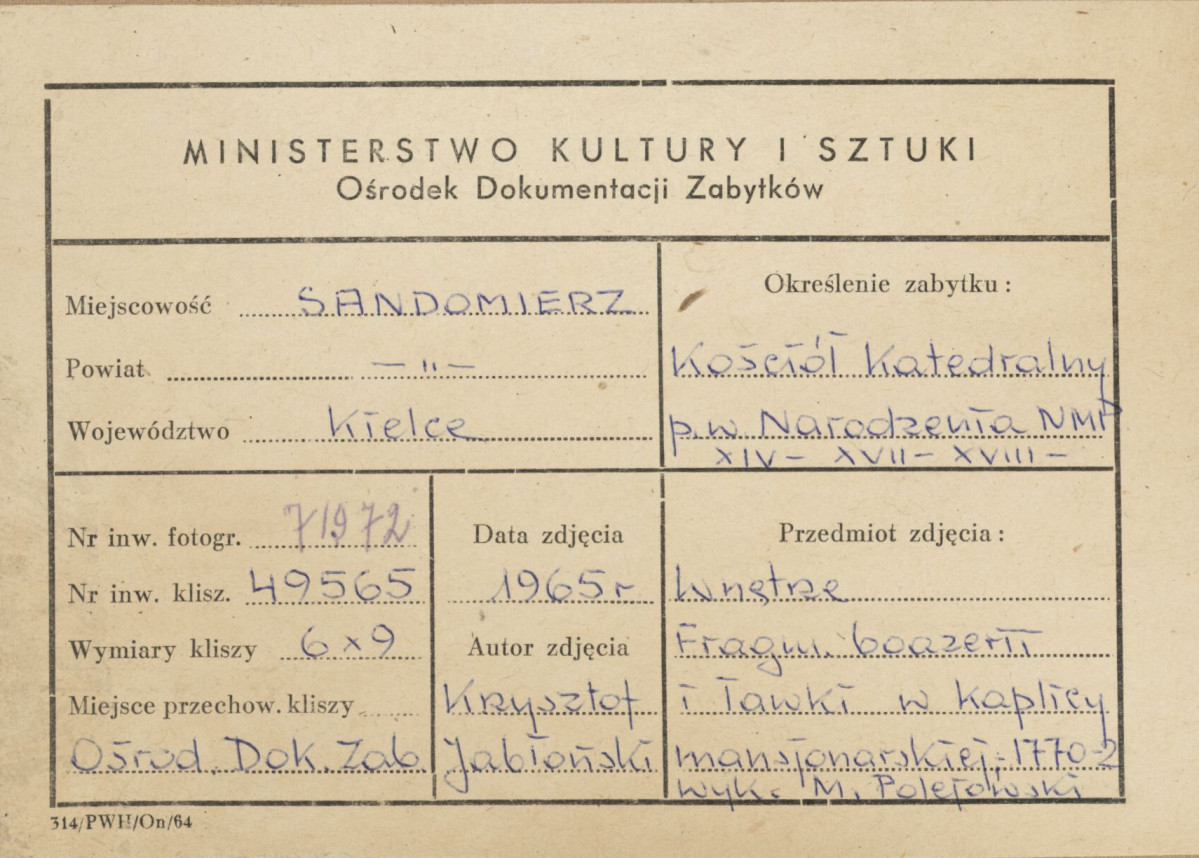 MINISTERSTWO KULTURY I SZTUKI
Ośrodek Dokumentacji Zabytków
Miejscowość SANDOMIERZ
Powiat — " —
Województwo Kielce
Określenie zabytku:
Kościół Katedralny
p.w Narodzenia NMP
XIV – XVII – XVIII –
Nr inw. fotogr. 71972
Nr inw. klisz. 49565
Wymiary kliszy 6 x 9
Miejsce przechow. kliszy
Ośrod. Dok. Zab
Data zdjęcia
1965 r
Autor zdjęcia
Krzysztof
Jabłoński
Przedmiot zdjęcia:
Wnętrze
Fragm. boazerii
i ławki w Kaplicy
mansjonarskiej, 1770-2
wyk. M. Polejowski
314/PWH/On/64